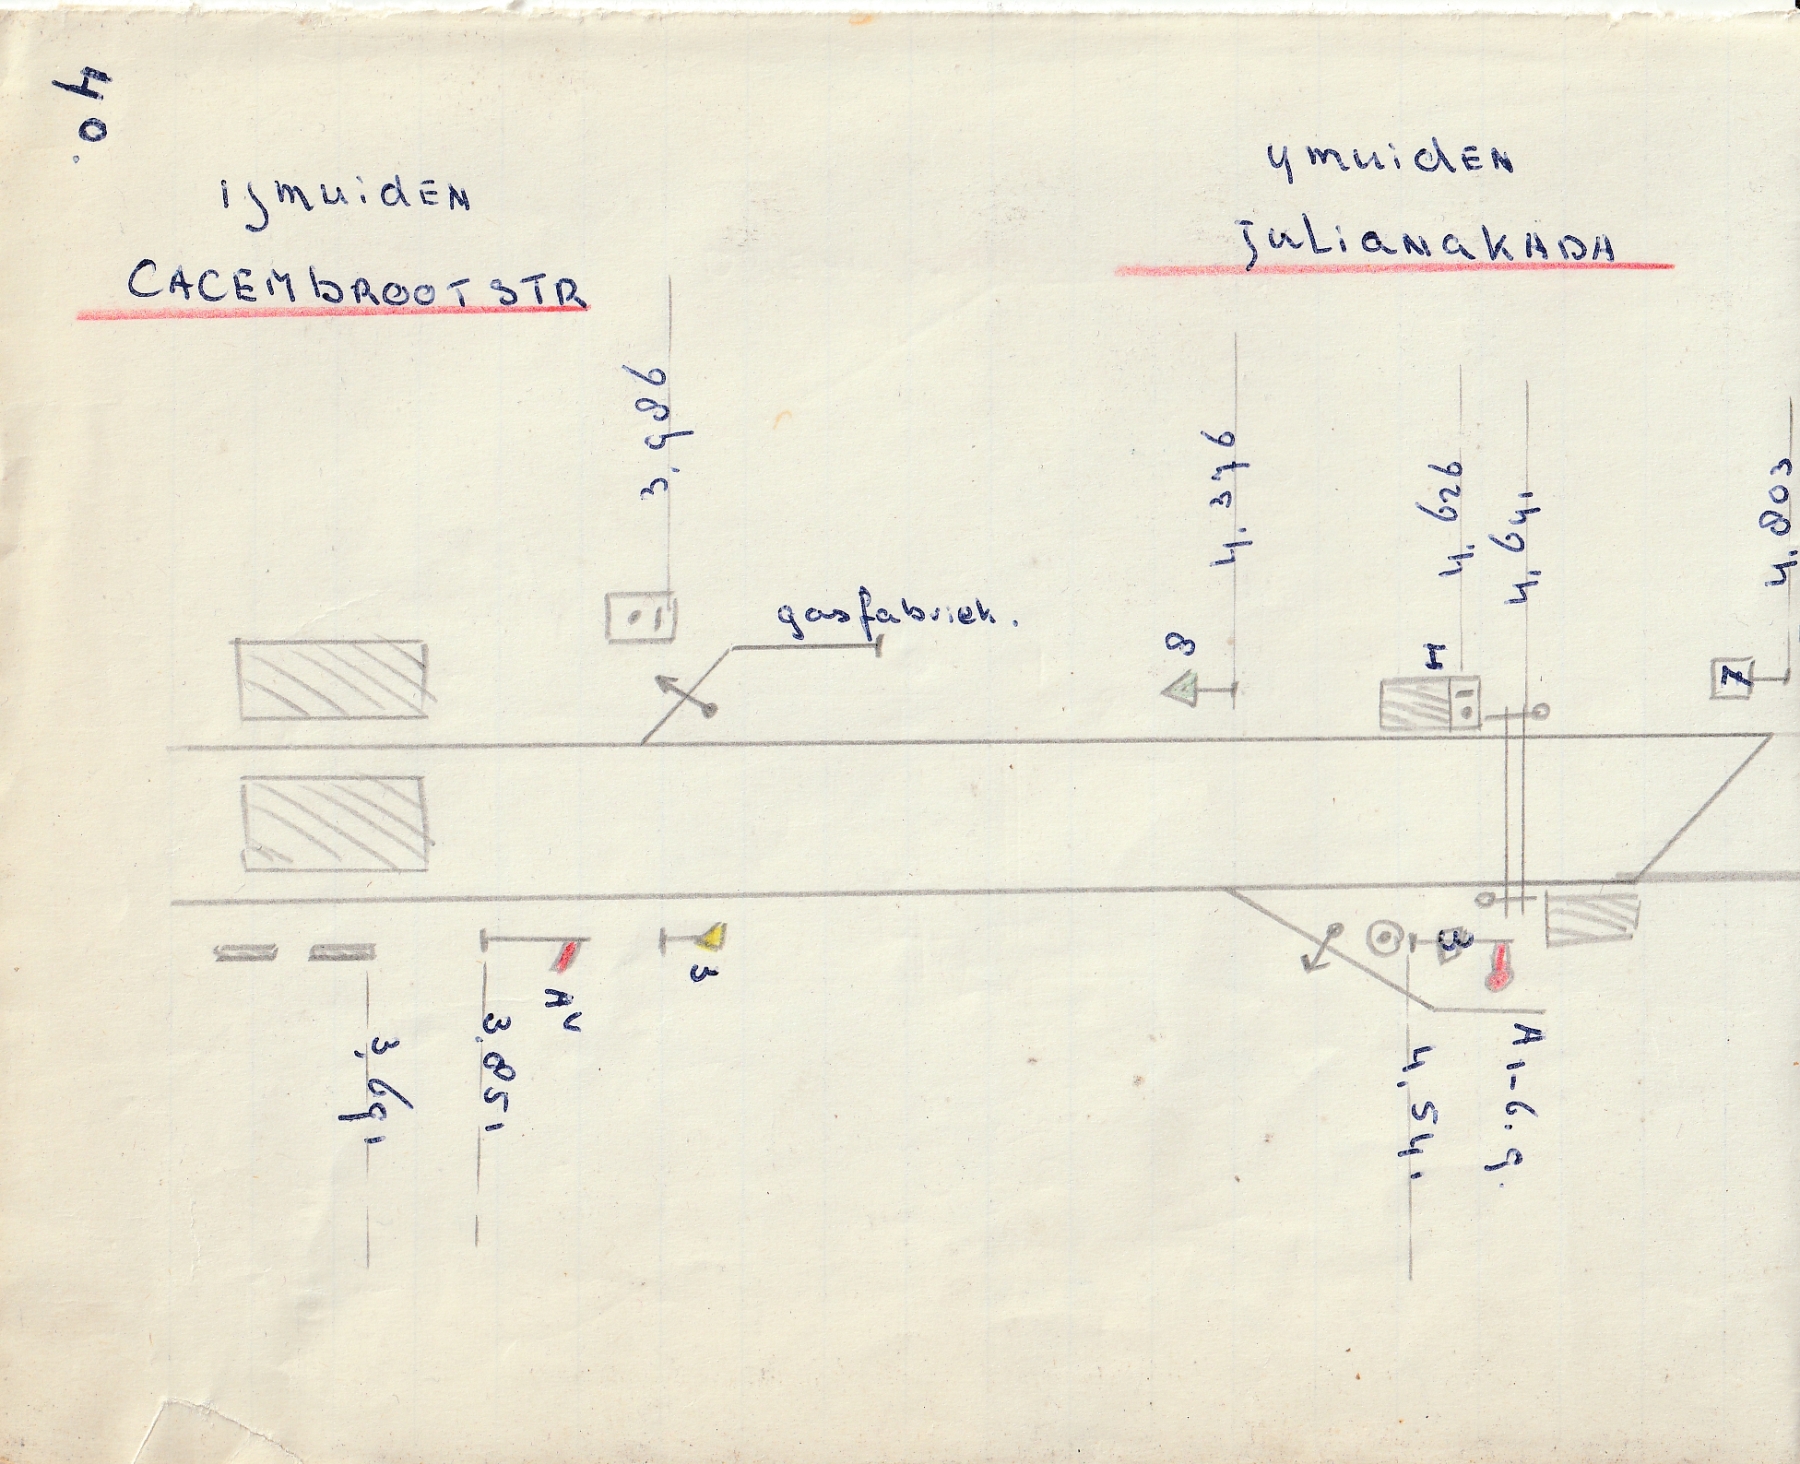 40.
ijmuiden
CACEMbROOTSTR
ymuiden
juLiaNaKADA
3.986
gasfabriek.
4.376
8
4.626
H
4.641
4.803
7
3.691
3.851
3
3
4.541
A1-6.9.